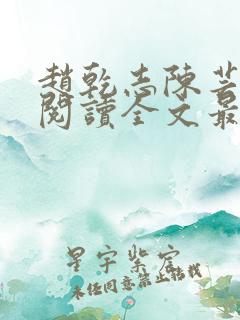 趙乾志陳芸
閱讀全文最
星宇紫宸
未经同意禁止转载